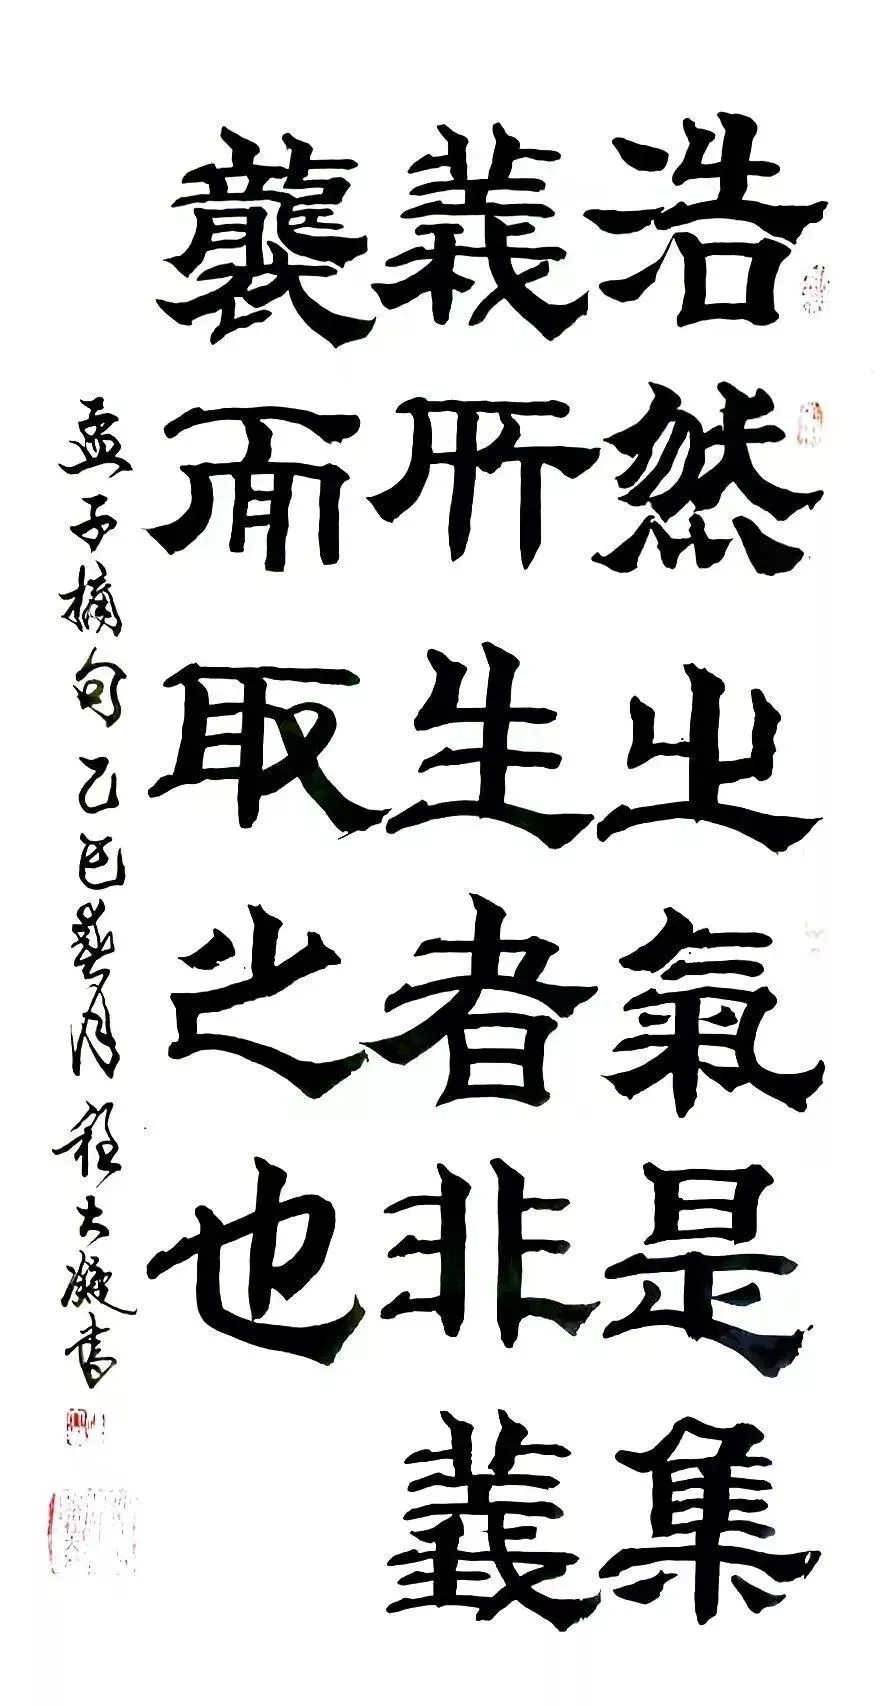 浩然之氣是集
義所生者非義
襲而取之也
孟子摘句乙巳春月程大凝書